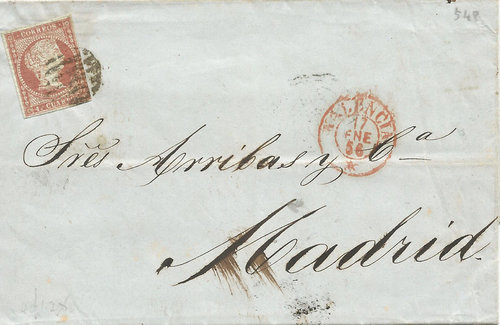 548
CORREOS
4 CUARTOS
VALENCIA
17
ENE
56
Sres Arribas y Ca
Madrid